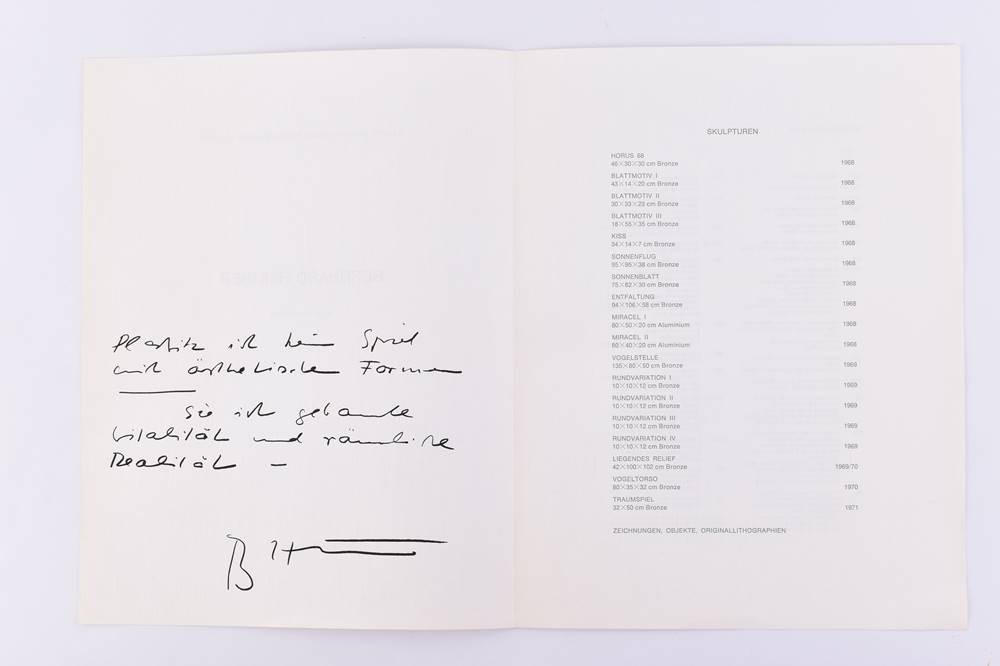 Plastik ist kein Spiel
mit ästhetischen Formen
Sie ist gebaute
Vitalität und räumliche
Realität –
SKULPTUREN
HORUS 68
46×30×30 cm Bronze 1968
BLATTMOTIV I
43×14×20 cm Bronze 1968
BLATTMOTIV II
30×33×23 cm Bronze 1968
BLATTMOTIV III
16×55×35 cm Bronze 1968
KISS
34×14×7 cm Bronze 1968
SONNENFLUG
95×95×38 cm Bronze 1968
SONNENBLATT
75×62×30 cm Bronze 1968
ENTFALTUNG
94×106×58 cm Bronze 1968
MIRACEL I
80×50×20 cm Aluminium 1968
MIRACEL II
80×40×20 cm Aluminium 1968
VOGELSTELLE
135×80×50 cm Bronze 1969
RUNDVARIATION I
10×10×12 cm Bronze 1969
RUNDVARIATION II
10×10×12 cm Bronze 1969
RUNDVARIATION III
10×10×12 cm Bronze 1969
RUNDVARIATION IV
10×10×12 cm Bronze 1969
LIEGENDES RELIEF
42×100×102 cm Bronze 1969/70
VOGELTORSO
80×35×32 cm Bronze 1970
TRAUMSPIEL
32×50 cm Bronze 1971
ZEICHNUNGEN, OBJEKTE, ORIGINALLITHOGRAPHIEN